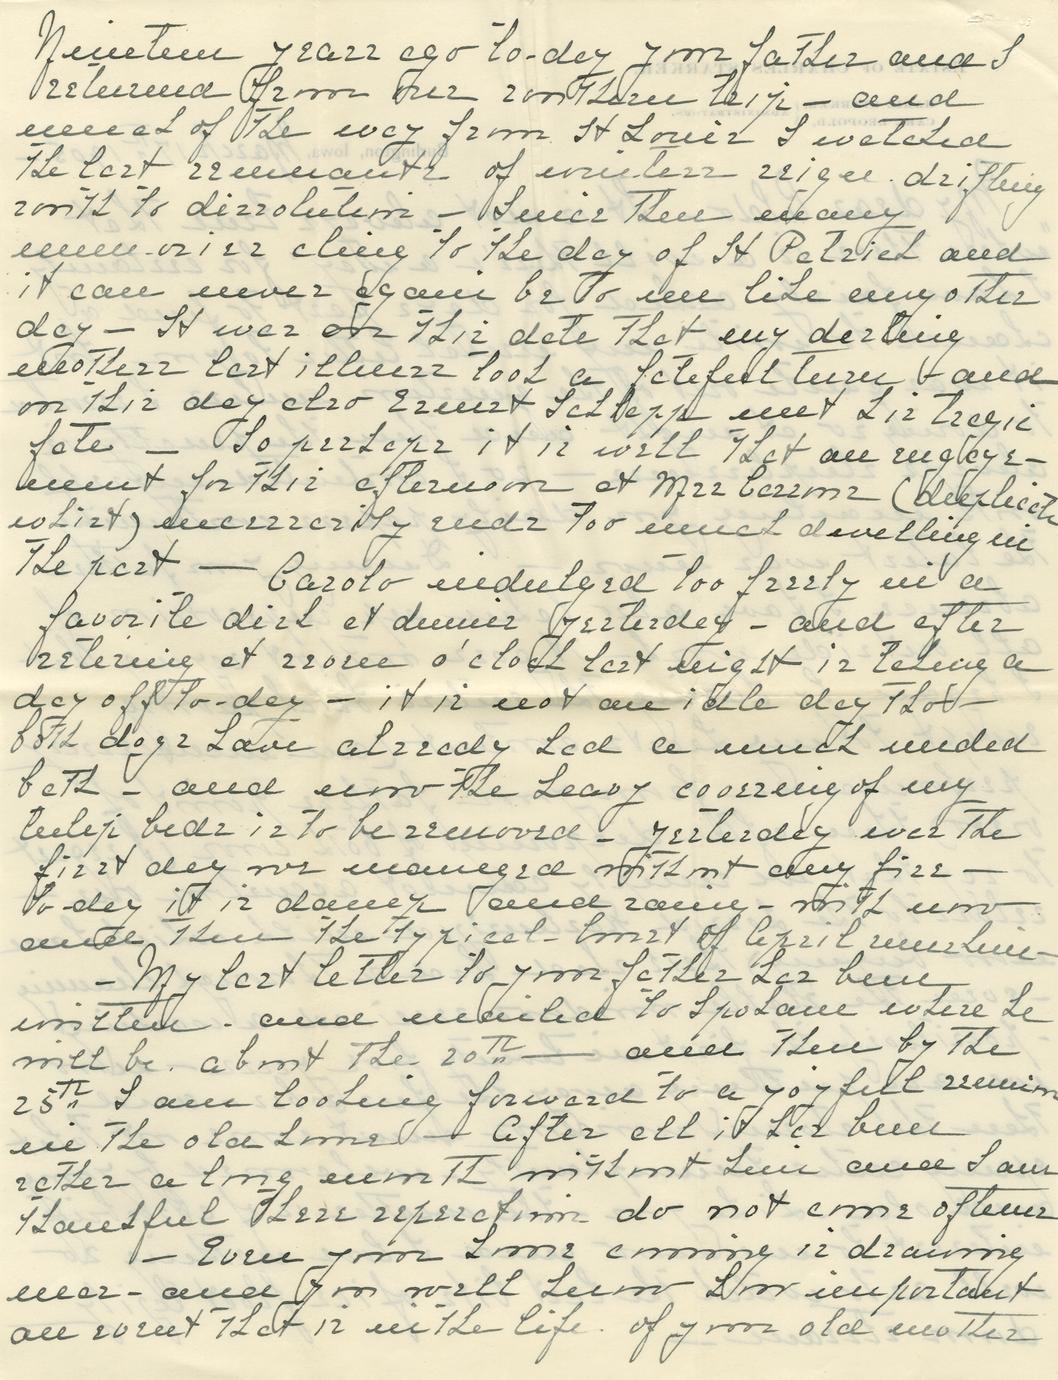 Nineteen years ago to-day your father and I
returned from our southern trip – and
much of the way from St Louis I watched
the last remnants of winters reign drifting
south to dissolution – Since then many
memories cling to the day of St Patrick and
it can never again be to me like any other
day – It was on this date that my darling
mothers last illness took a fateful turn & and
on this day also Ernest Schlapp met his tragic
fate – So perhaps it is well that an engage-
ment for this afternoon at Mrs Carsons (duplicate
whist) necessarily ends too much dwelling in
the past — Caroto indulged too freely in a
favorite dish at dinner yesterday – and after
retiring at seven o'clock last night is taking a
day off to-day – it is not an idle day tho' –
both dogs have already had a much needed
bath – and now the heavy covering of my
tulip beds is to be removed – yesterday was the
first day we managed without any fire –
to-day it is damp and rainy – with now
and then the typical burst of April sunshine –
– My last letter to your father has been
written – and mailed to Spokane where he
will be about the 20th — and then by the
25th I am looking forward to a joyful reunion
in the old home — After all it has been
rather a long month without him and I am
thankful these separations do not come oftener
– Even your home coming is drawing
near – and you well know how important
an event that is in the life of your old mother